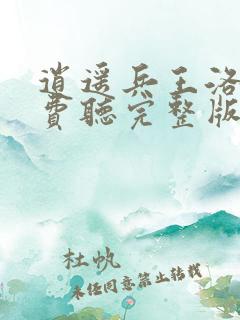 逍遥兵王洛
費聽完整版
杜帆
未經同意禁止轉載